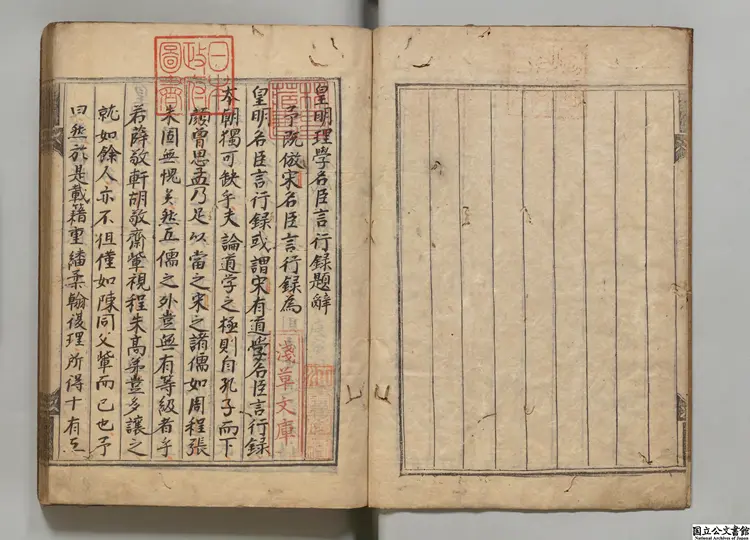 皇明理學名臣言行録題辭
予既倣宋名臣言行録為
皇明名臣言行録或謂宋有道學名臣言行録
本朝獨可缺乎夫論道学之極則自孔子而下
顔曾思孟乃足以當之宋之諸儒如周程張
朱固無愧矣然五儒之外豈無有等級者乎
若薛敬軒胡敬齋軰視程朱高弟豈多讓之
就如餘人亦不但僅如陳同父軰而已也予
曰然於是載籍重繙柔翰復理所得十有五
日本
政府
圖書
淺草文庫
国立公文書館
National Archives of Japan